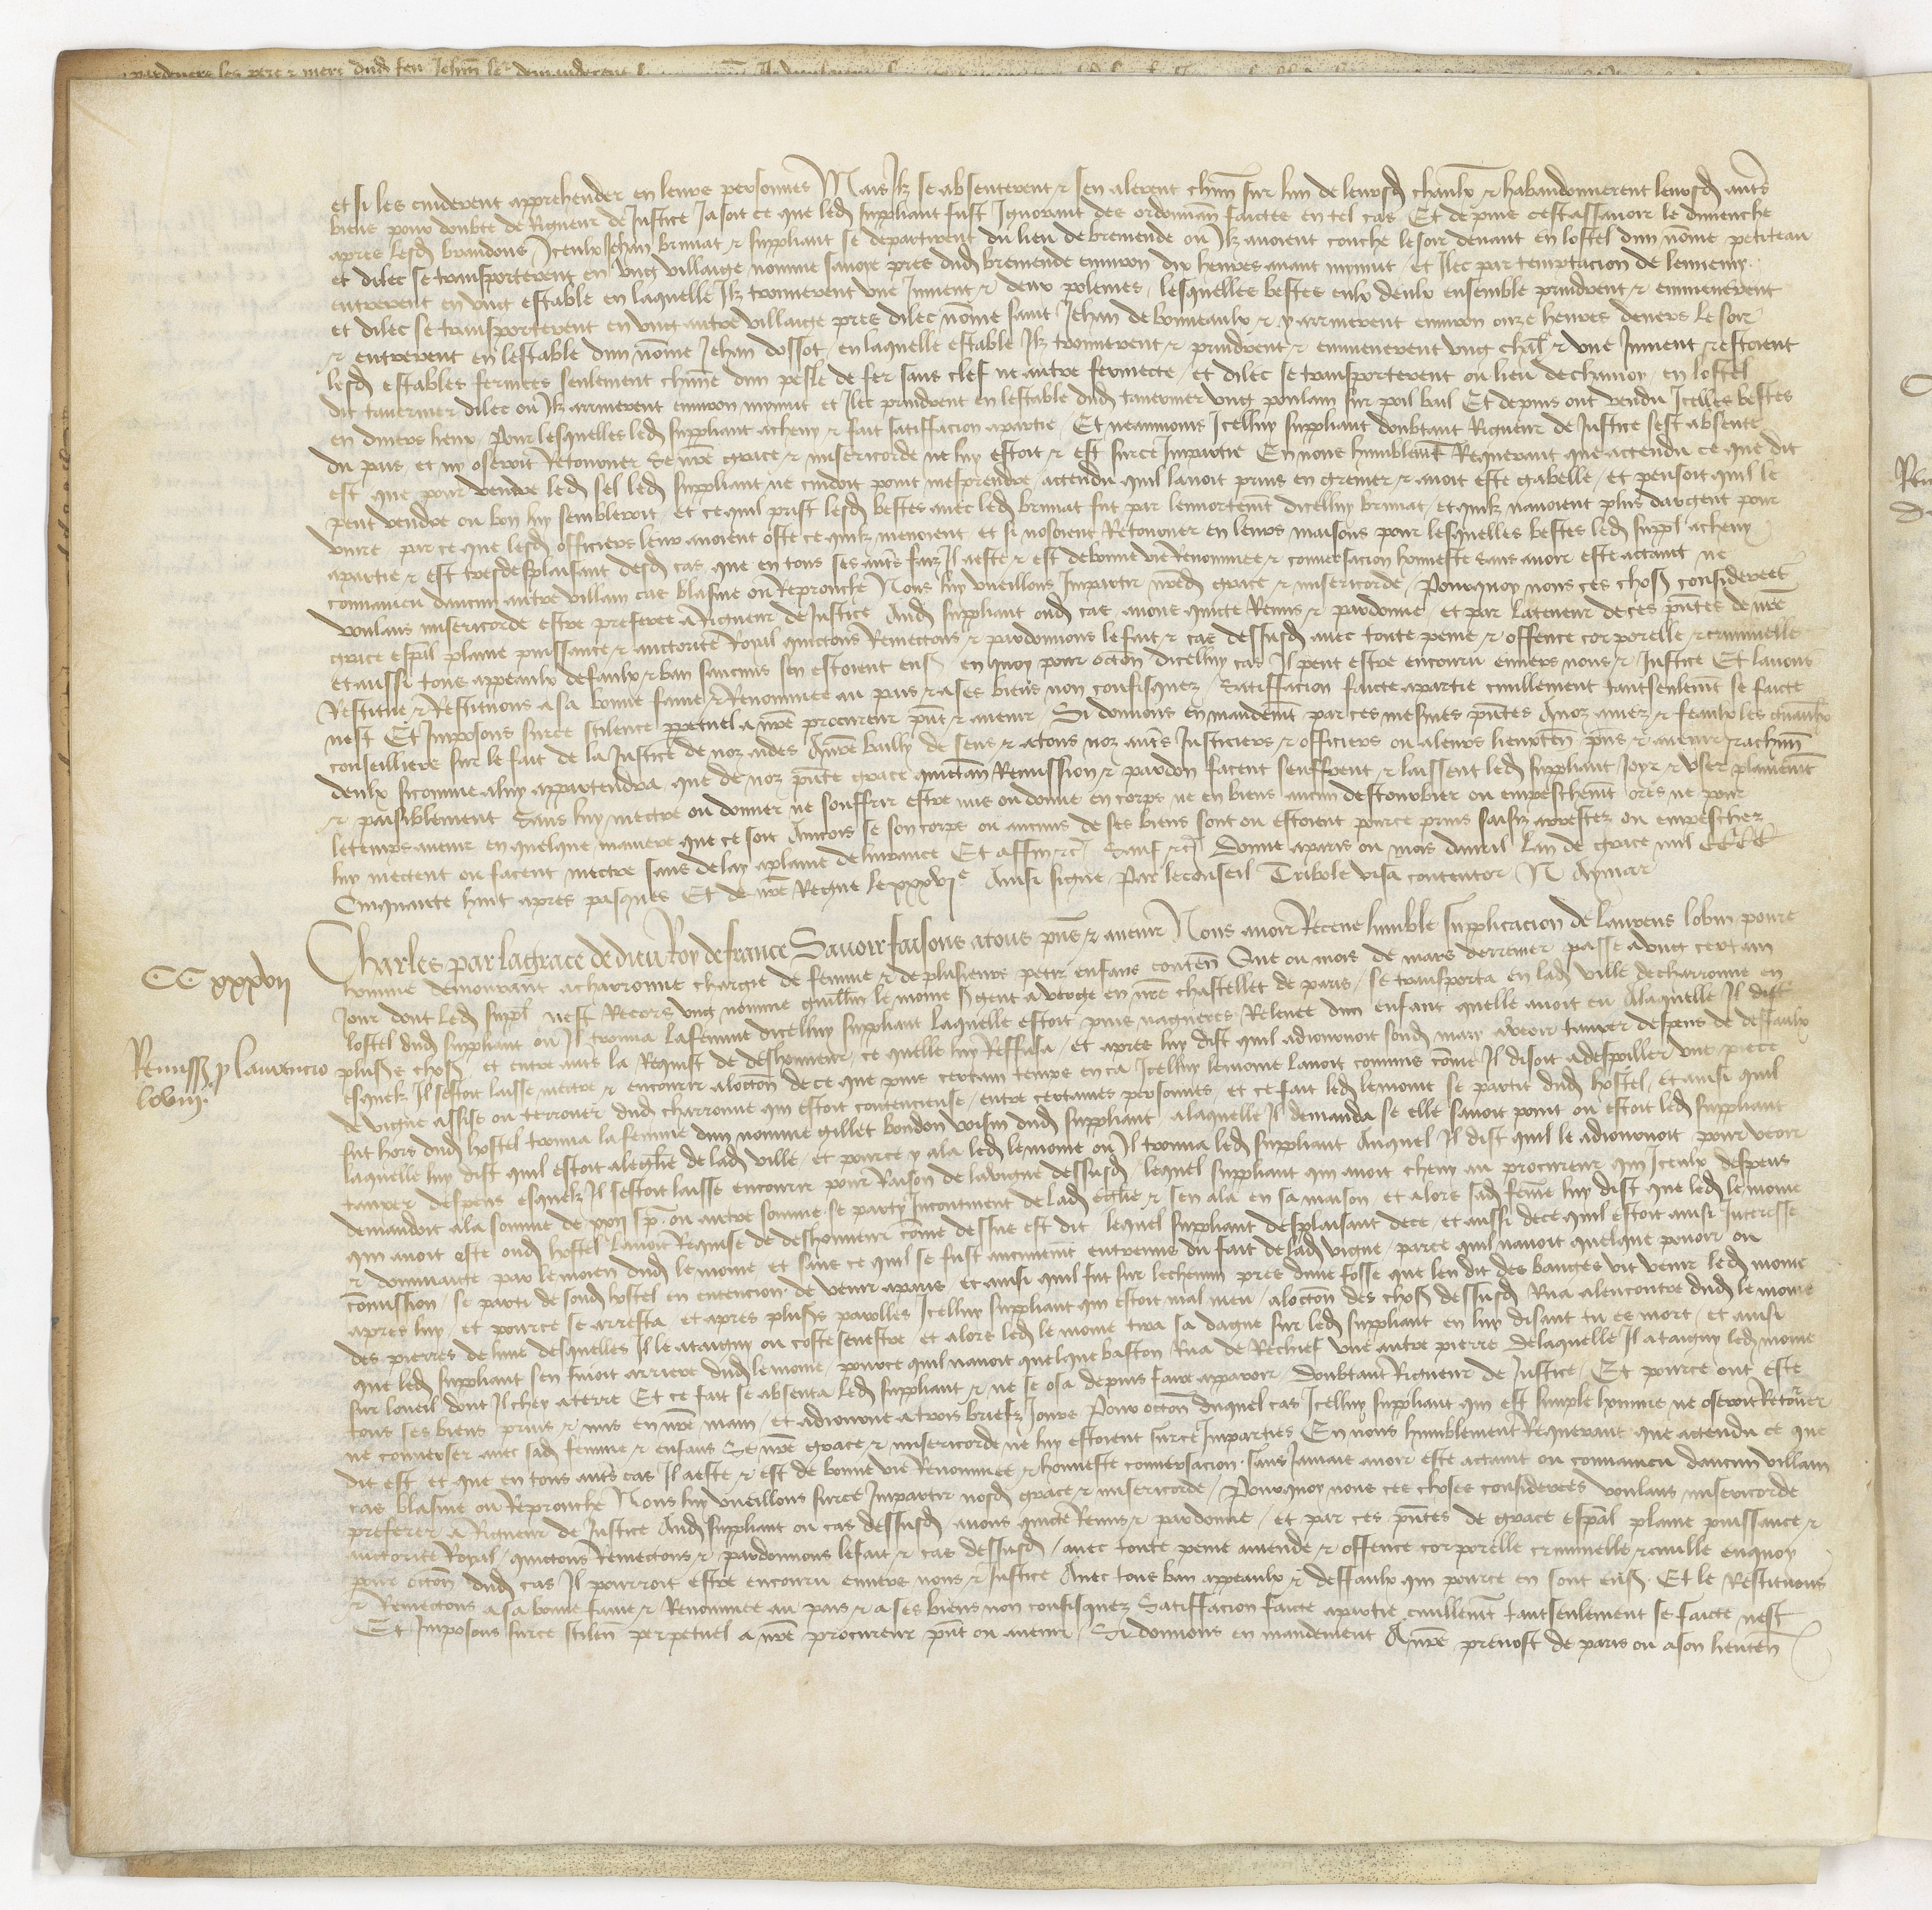 et si les cuiderent apprehender en leurs personnes Mais Ilz se absenterent & sen alerent chun sur lun de leursd chaulx & habandonnerent leursd autˢ
biens pour doubte de Rigueur de Justice Jasoit ce que led suppliant fust Ignorant des ordonnanˢ faictes en tel cas Et depuis cestassavoir le dimenche
apres lesd brandons Iceulx Jehan brunat & suppliant se departirent du lieu de bremende ou Ilz avoient couche le soir devant en lostel dun nōme petiteau
et dilec se transporterent en ung villaige nomme savoye pres dud bremende environ dix heures avant mynuit / et Ilec par temptacion de lennemy
entrerent en ung estable en laquelle Ilz trouverent une Jument & deux polemes / lesquelles bestes eulx deulx ensemble prindrent & emmenerent
et dilec se transporterent en ung autre villaige pres dilec nōme saint Jehan de bonneaulx & y arriverent environ onze heures devers le soir
& entrerent en lestable dun nōme Jehan dossot / en laquelle estable Ilz trouverent & prindrent & emmenerent ung chūl & une Jument & estoient
lesd estables fermees seulement chūne dun pesle de fer sans clef ne autre fermecte / et dilec se transporterent ou lieu de chamoy / en lostel
dit tavernier dilec ou Ilz arriverent environ mynuit et Ilec prindrent en lestable dud tavernier ung poulain sur poil bail Et depuis ont vendu Icelles bestes
en divers lieux / Pour lesquelles led suppliant acheny & fait satiffacion a partie / Et neanmoins Icelluy suppliant doubtant Rigueur de Justice sest absente
du pais et ny oseroit Retourner se nrē grace & misericorde ne luy estoit & est surce Impartie En nous humblemt Requerant que actendu ce que dit
est que pour vendre led sel led suppliant ne cuidoit point mesprendre / actendu quil lavoit prins en grenier & avoit este gabelle / et pensoit quil le
peut vendre ou bon luy sembleroit / et ce quil prist lesd bestes avec led brunat fut par lennortemt dicelluy brunat / et quilz navoient plus dargent pour
vivre par ce que lesd officiers leur avoient oste ce quilz menoient et si nosoient Retourner en leurs maisons pour lesquelles bestes led suppl acheny
apartie & est tresdesplaisant desd cas que en tous ses autˢ faiz Il a este & est de bonne vie Renommee & conversacion honneste sans avoir este actaint ne
convaincu daucun autre villain cas blasme ou Reprouche Nous luy vueillons Impartir nred grace & misericorde / Pourquoy nous ces choses considerees
voulans misericorde estre preferee a Rigueur de Justice Aud suppliant oud cas avons quicte Remis & pardonne / et par la teneur de ces pn̄tes de nrē
grace esp̄al plaine puissance & auctorite Royal quictons Remectons & pardonnons le fait & cas dessusd avec toute peine & offence corporelle & criminelle
et aussi tous appeaulx defaulx & ban saucuns sen estoient ens̄ en quoy pour occōn dicelluy cas Il peut estre encouru envers nous & Justice Et lavons
Restitue & Restituons a sa bonne fame & Renommee au pais & a ses biens non confisquez / Satiffacion faicte apartie civillement tantseulemt se faicte
nest Et Imposons surce scilence ppetuel a nrē procureur pn̄t & avenir / Si donnons en mandemt par ces mesmes pn̄tes A noz amez & feaulx les gnāulx
conseilliers sur le fait de la Justice de noz aides A nrē bailly de sens & atous noz autˢ Justiciers & officiers ou a leurs lieuxten pn̄s & avenir & achun
deulx sicomme aluy appartendra que de noz pn̄te grace quictan Remission & pardon facent seuffrent & laissent led suppliant Joyr & user plainemt
& paisiblement Sans luy mectre ou donner ne souffrir estre mis ou donne en corps ne en biens aucun destourbier ou empeschemt ores ne pour
letemps avenir en quelque maniere que ce soit Aincois se son corps ou aucuns de ses biens sont ou estoient pource prins saisiz arrestez ou empeschez
luy mectent ou facent mectre sans delay a plaine delivrance Et affin &c̄ Sauf &c̄ Donne aparis ou mois davril Lan de grace mil CCCC
Cinquante huit apres pasques Et de nrē Regne le xxxvjᵉ Ainsi signe / Par le conseil Tribole visa contentor N Aymar
CC xxxvij
Charles par la grace de dieu Roy de france Savoir faisons atous pn̄s & avenir Nous avoir Receue humble supplicacion de laurens lobin povre
homme demourant a charronne chargie de femme & de plusieurs petiz enfans conten̄ Que ou mois de mars derrenier passe a ung certain
Jour dont led suppl nest Recors ung nomme guill̄m le moine sgent a verge en nrē chastellet de paris / se transporta en lad ville de charronne en
Remiss p laurencio
lobin.
lostel dud suppliant ou Il trouva la femme dicelluy suppliant laquelle estoit puis nagueres Relevee dun enfant quelle avoit eu A laquelle Il dist
plusˢ chosˢ et entre autˢ la Requist de deshonneur / ce quelle luy Reffusa / et apres luy dist quil adiournoit soud mary a veoir tauxer despens de deffaulx
esquelz Il sestoit laisse mectre & encourir a loccōn de ce que puis certain temps enca Icelluy lemoine lavoit commis cōme Il disoit a despoillier une piece
de vigne assise ou terrouer dud charronne qui estoit contencieuse / entre certaines personnes / et ce fait led lemoine se partit dud hostel / Et ainsi quil
fut hors dud hostel trouva la femme dun nomme gillet boudon voisin dud suppliant / a laquelle Il demanda se elle savoit point ou estoit led suppliant
laquelle luy dist quil estoit aleglīse de lad ville / et pource y ala led lemoine ou Il trouva led suppliant Auquel Il dist quil le adiournoit pour veoir
tauxer despens esquelz Il sestoit laisse encourir pour Raison de lavigne dessusd / lequel suppliant qui avoit cheny au procureur qui Iceulx despens
demandoit ala somme de xvij sp̄. ou autre somme. se party Incontinent de lad eglīse & sen ala en sa maison / et alors sad femē luy dist que led lemoine
qui avoit este oud hostel lavoit Requise de deshonneur cōme dessus est dit / lequel suppliant desplaisant dece / et aussi dece quil estoit ainsi Interesse
& dommaigie par lemoien dud lemoine et sans ce quil se fust aucunemt entremis du fait de lad vigne / parce quil navoit quelque povoir ou
cōmission / se parti de soud hostel en entencion de venir aparis et ainsi quil fut sur lechemin pres dune fosse que len dit des bauges vit venir led moine
apres luy / et pource se arresta et apres plusˢ parolles Icelluy suppliant qui estoit mal meu / a loccōn des chosˢ dessusd Rua alencontre dud lemoine
des pierres de lune desquelles Il le ataigny ou coste senestre / et alors led le moine tira sa dague sur led suppliant en luy disant tu es mort / et ainsi
que led suppliant sen fuioit arriere dud lemoine / pource quil navoit quelque baston Rua de Rechief une autre pierre de laquelle Il ataigny led moine
sur loueil dont Il chey a terre Et ce fait se absenta led suppliant & ne se osa depuis faire apparoir / doubtant Rigueur de Justice / Et pource ont este
tous ses biens prins & mis en nrē main / et adiourne a trois briefz Jours Pour occōn duquel cas Icelluy suppliant qui est simple homme ne oseroit Retourer
ne converser avec sad femme & enfans Se nrē grace & misericorde ne luy estoient surce Imparties En nous humblement Requerant que actendu ce que
dit est et que en tous autˢ cas Il a este & est de bonne vie Renommee & honneste conversacion. sans Jamais avoir este actaint ou convaincu daucun villain
cas blasme ou Reprouche Nous luy vueillons surce Impartir nosd grace & misericorde / Pourquoy nous ces choses considerees voulans misericorde
preferer a Rigueur de Justice Aud suppliant ou cas dessusd avons quicte Remis & pardonne / et par ces pn̄tes de grace esp̄al plaine puissance &
auctorite Royal / quictons Remectons & pardonnons le fait & cas dessusd / avec toute peine amende & offence corporelle criminelle & civille en quoy
pour occōn dud cas Il pourroit estre encouru envers nous & Justice Avec tous ban appeaulx & deffaulx qui pource en sont ensˢ. Et le Restituons
& Remectons a sa bonne fame & Renommee au pais & a ses biens non confisquez Satiffacion faicte apartie civillemt tantseulement se faicte nest
Et Imposons surce scilen̄ perpetuel a nrē procureur pn̄t ou avenir / Si donnons en mandement A nrē prevost de paris ou a son lieuten̄